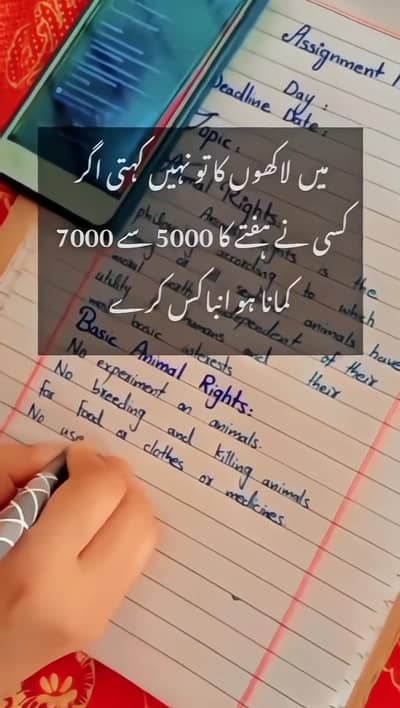 Assignment
Day:
Deadline Date:
Topic:
میں لاکھوں کا تو نہیں کہتی اگر
کسی نے ہفتے کا 5000 سے 7000
کمانا ہو انباکس کرے
Animal Rights
is the
according to which
animals have
independent of their
humans and their
basic interests
Basic Animal Rights:
No experiment on animals.
No breeding and killing animals
for food or clothes or medicines.
No use